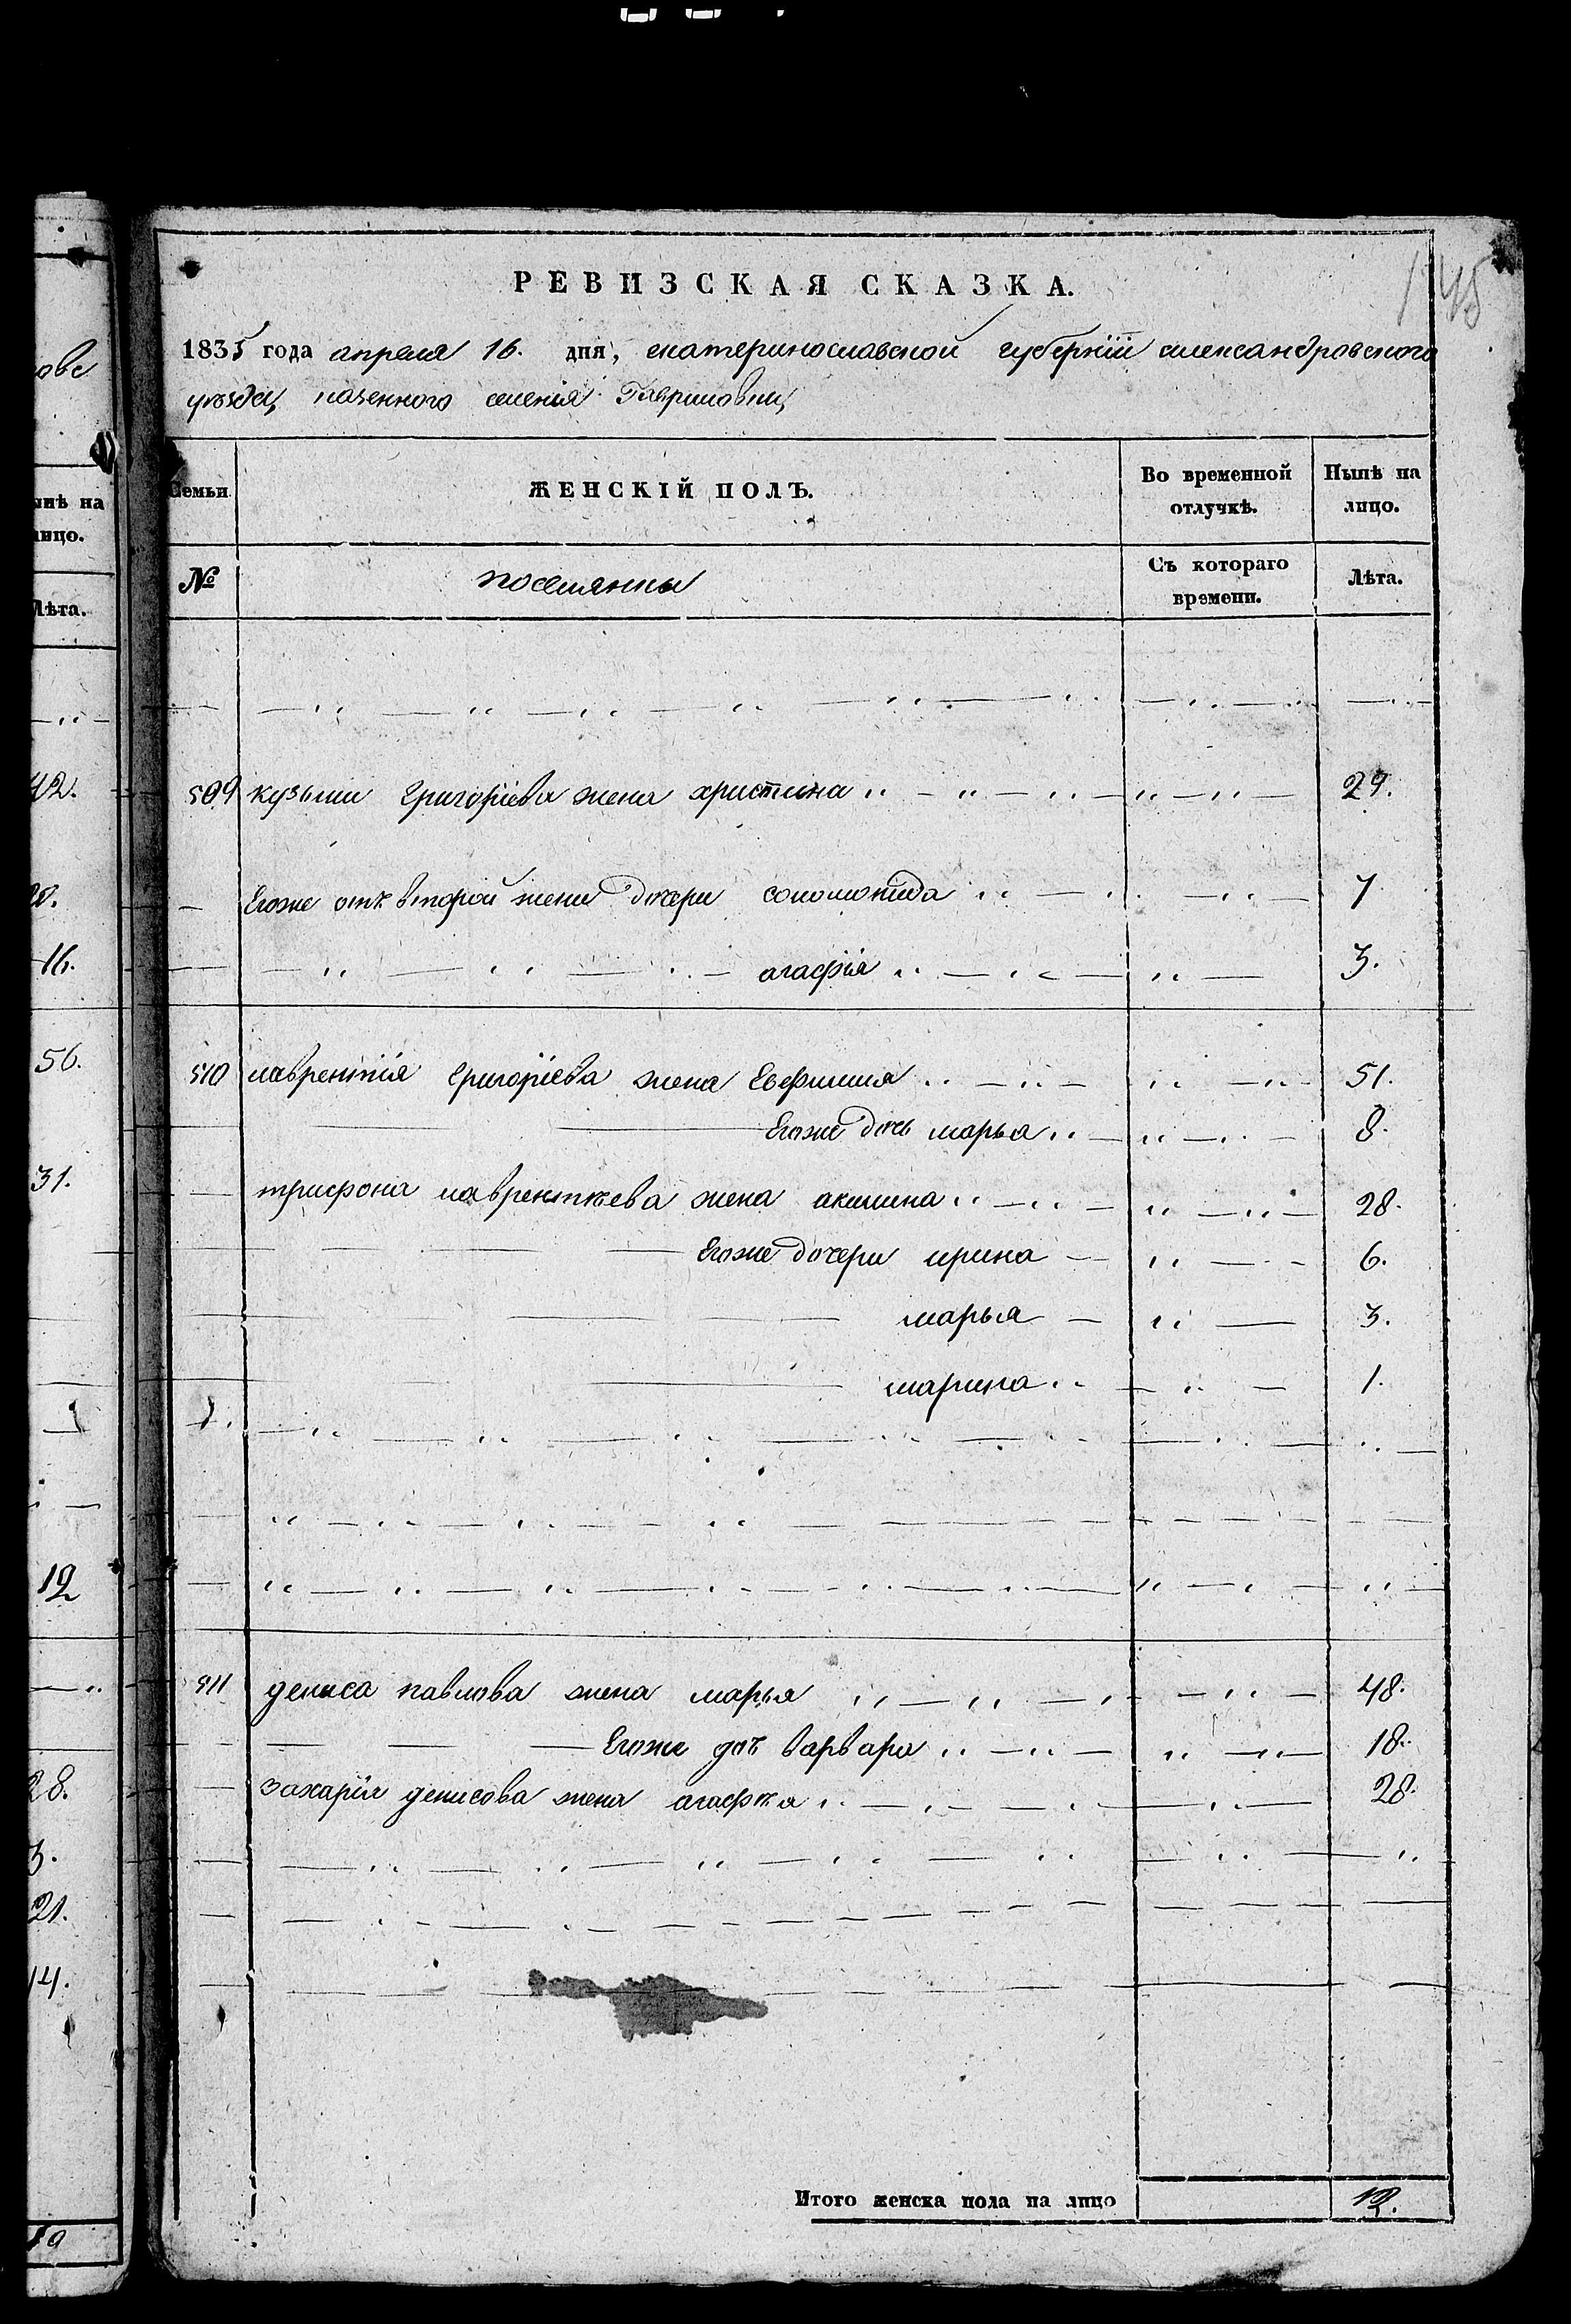 145
РЕВИЗСКАЯ СКАЗКА.
1835 года апреля 16. дня, екатеринославской губернїи александровского
уѣзда, казенного селенїя Гавриловки,
Семьи
ЖЕНСКІЙ ПОЛЪ.
Во временной отлучкѣ.
Нынѣ на лицо.
№
поселянки
Съ котораго времени.
Лѣта.
509 кузьми Григорїева жена христина 29.
Егоже отъ второй жени дочери соломонида 7
агафїя 3.
510 лаврентїя Григорїева жена Евфимия 51.
Егоже дочь марья 8.
трифона лаврентьева жена акилина 28.
Егоже дочери ирина 6.
марья 3.
марина 1.
511 дениса павлова жена марья 48.
Егоже доч варвара 18.
захарїя денисова жена агафья 28.
Итого женска пола на лицо 12.
ове
ынѣ на
лицо.
Лѣта.
42.
16.
56.
31.
12
28.
3.
21.
14.